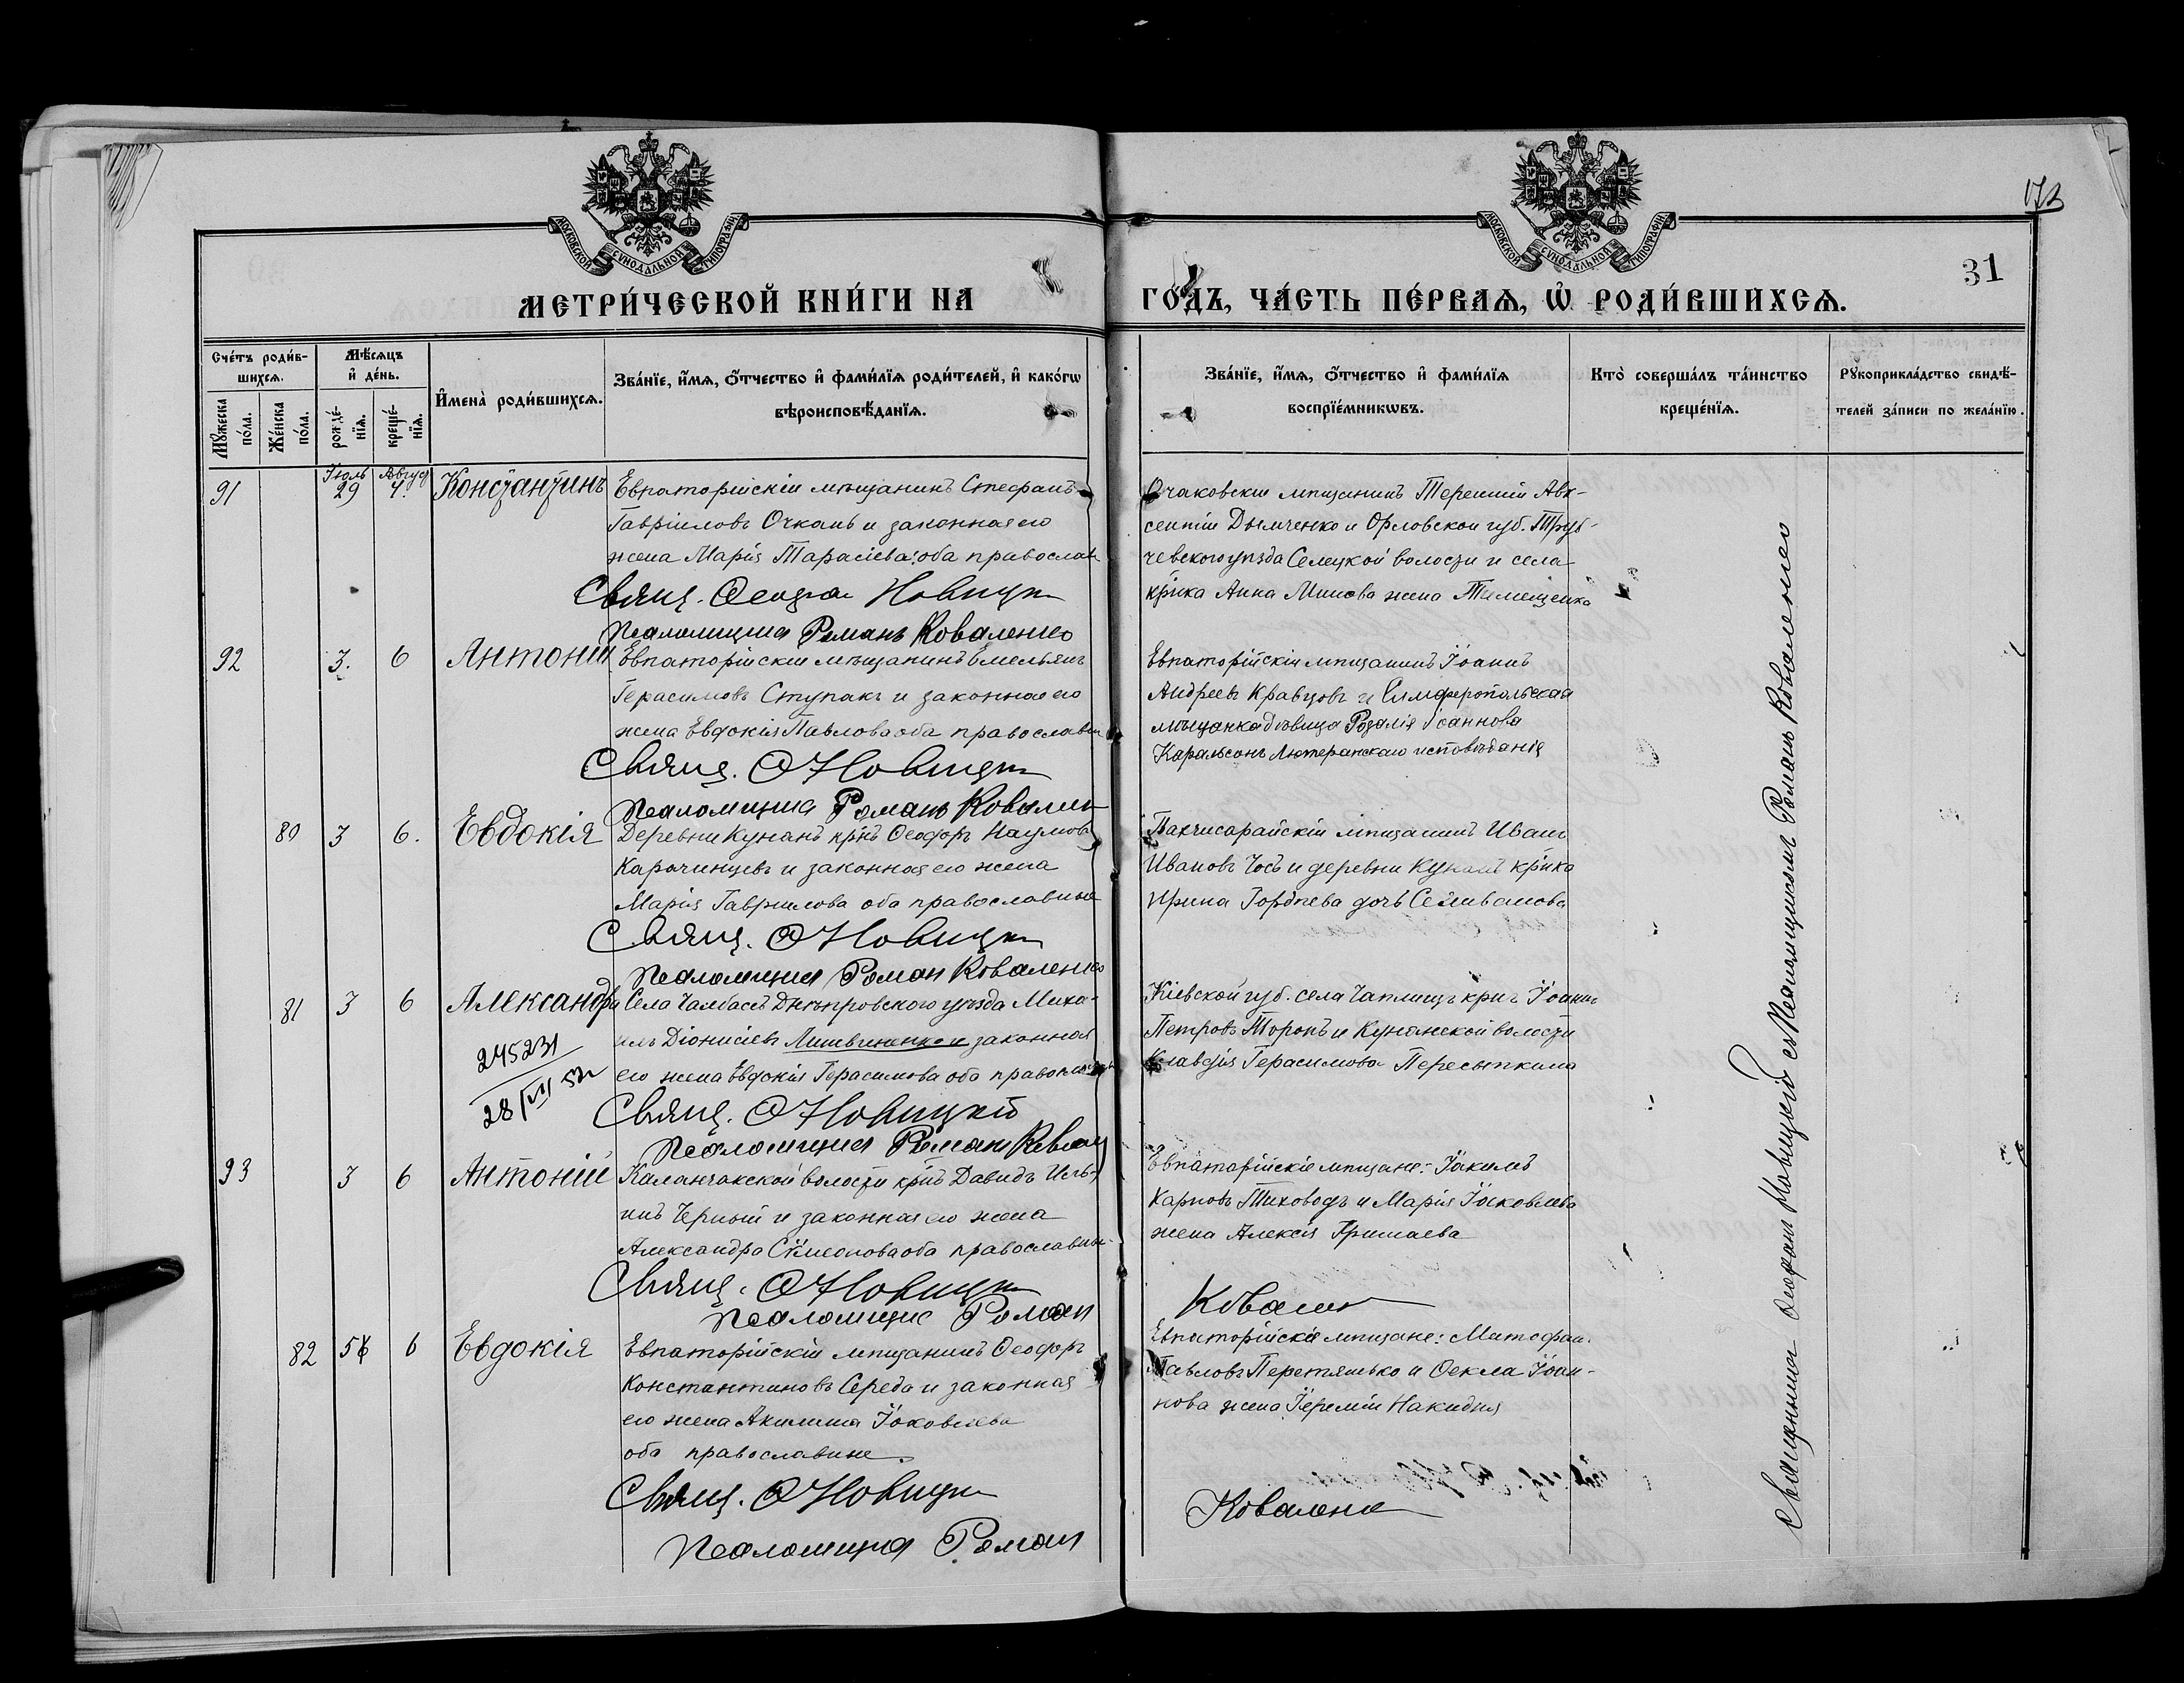 МОСКОВСКОЙ СѴНОДАЛЬНОЙ ТИПОГРАФІИ
МОСКОВСКОЙ СѴНОДАЛЬНОЙ ТИПОГРАФІИ
31
МЕТРИ́ЧЕСКОЙ КНИ́ГИ НА
ГО́ДЪ, ЧА́СТЬ ПЕ́РВАѦ, Ѡ҆ РОДИ́ВШИХСѦ.
Сче́тъ роди́в-
шихсѧ.
Мѣ́сѧцъ
и҆ де́нь.
И҆мена̀ роди́вшихсѧ.
Зва́нїе, и҆́мѧ, ѻ҆́тчество и҆ фами́лїѧ роди́телей, и҆ како́гѡ
вѣроисповѣ́данїѧ.
Мꙋ́жеска
по́ла.
Же́нска
по́ла.
рожде́-
нїѧ.
креще́-
нїѧ.
Зва́нїе, и҆́мѧ, ѻ҆́тчество и҆ фами́лїѧ
воспрїе́мникѡвъ.
Кто̀ соверша́лъ та́инство
креще́нїѧ.
Рꙋкоприкла́дство свидѣ́-
телей за́писи по жела́нїю.
Іюль Август
91 29 4. Константинъ
Евпаторійскій мѣщанинъ Стефанъ
Гавріиловъ Очкань и законная его
жена Марія Тарасіева: оба православ
Свящ. Ѳеодоръ Новицкій
Псаломщикъ Романъ Коваленко
Очаковскій мѣщанинъ Терентій Авк-
сентіи Дымченко и Орловской губ. Труб-
чевского уѣзда Селецкой волости и села
кр'нка Анна жена
92 3. 6 Антоній
Евпаторійскій мѣщанинъ Емельянъ
Герасимовъ Ступакъ и законная его
жена Евдокія Павлова оба православн
Свящ. Ѳ Новицкій
Псаломщикъ Романъ Ковален
Евпаторійскій мѣщанинъ Іоаннъ
Андреевъ Кравцовъ и Симферопольская
мѣщанка дѣвица Розалія Іоаннова
Карльсонъ Лютеранскаго исповѣданія
80 3 6. Евдокія
Деревни Кунанъ кр'нъ Ѳеодоръ Наумовъ
Карачинцевъ и законная его жена
Марія Гавриилова оба православные
Свящ. Ѳ Новицкій
Псаломщикъ Роман Коваленко
Бахчисарайскій мѣщанинъ Иванъ
Ивановъ Чосъ и деревни Кунанъ кр'нка
Ирина Гордѣева дочь Селиванова
81 3 6 Александра
245231
28/VII 52г
Села Чалбасъ Днѣпровского уѣзда Миха-
илъ Діонисіевъ Литвиненко и законная
его жена Евдокія Герасимова оба православн
Свящ. Ѳ Новицкій
Псаломщикъ Роман Ковал
Кіевской губ. села Чаплищъ кр'нъ Іоаннъ
Петровъ Торопъ и Кунанской волости
Клавдія Герасимова Пересыпкина
93 3 6 Антоній
Каланчакской волости кр'нъ Давидъ Иль-
инъ Черный и законная его жена
Александра Симеонова оба православны
Свящ. Ѳ Новицкій
Псаломщикъ Роман
Коваленко
Евпаторійскіе мѣщане: Іакимъ
Карповъ Тиховодъ и Марія Іаковлева
жена Алексія Гримаева
82 5 6 Евдокія
Евпаторійскій мѣщанинъ Ѳеодоръ
Константиновъ Середа и законная
его жена Акилина Іаковлева
оба православные.
Свящ. Ѳ Новицкій
Псаломщикъ Роман
Коваленко
Евпаторійскіе мѣщане: Митрофан.
Павловъ Перетятько и Ѳекла Іоан-
нова жена Іереміи Накидня
Священникъ Ѳеодоръ Новицкій съ Псаломщикомъ Романъ Коваленко